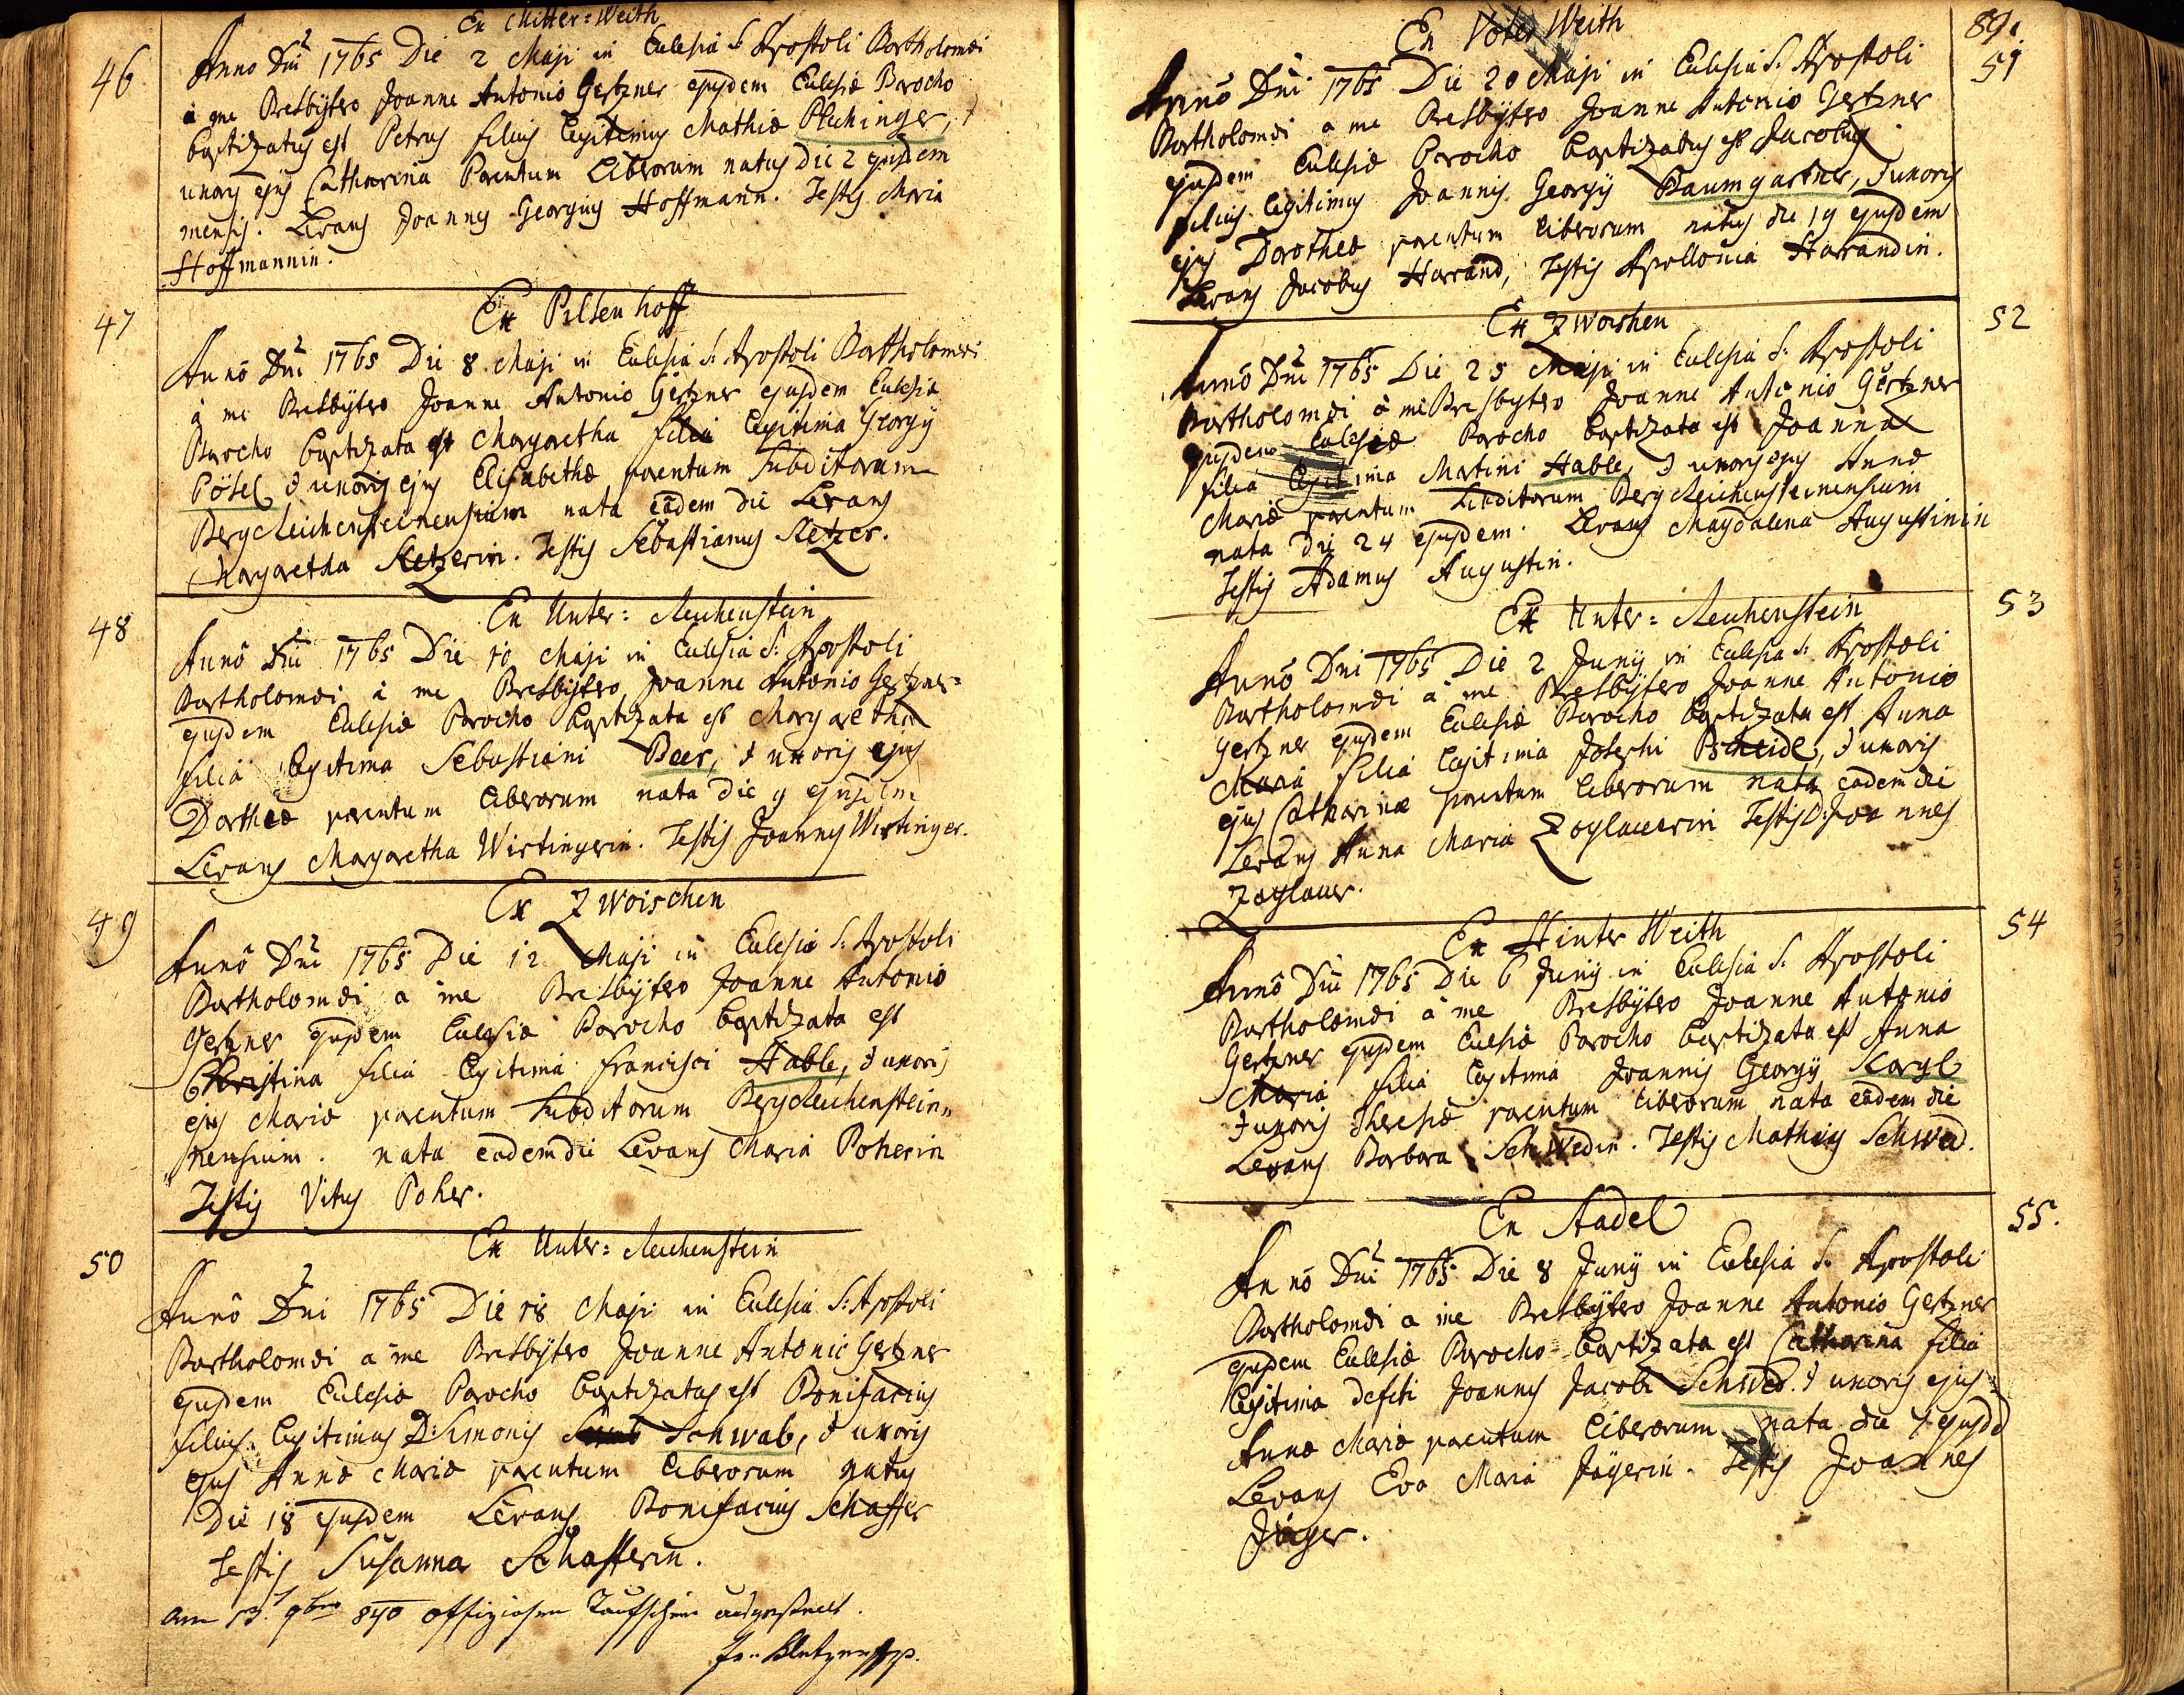 Ex Mitter=Weith
46
Anno Dni 1765 Die 2 Maji in Ecclesia S. Apostoli Bartholomæi
à me Presbÿtero Joanne Antonio Gertzner ejusdem Ecclesiæ Parocho
baptizatus est Petrus filius legitimus Mathiæ
uxoris ejus Catharina Parentum Liberorum natus Die 2 ejusdem
mensis. Levans Joannes Georgius Hoffmann. Testis Maria
Hoffmannin.
47
Ex Pilsenhoff
Annô Dni 1765 Die 8 Maji in Ecclesia S: Apostoli Bartholomæi
à me Presbÿtero Joanne Antonio Gertzner ejusdem Ecclesiæ
Parocho baptizata est Margaretha filia legitima Georgÿ
Pösel & uxoris ejus Elisabethæ parentum Subditorum
BergReichensteinensium nata eâdem die Levans
Margaretha Retzerin. Testis Sebastianus Retzer.
48
Ex Unter=Reichenstein
Annô Dni 1765 Die 10 Maji in Ecclesia S: Apostoli
Bartholomæi à me Presbÿtero Joanne Antonio Gertzner=
ejusdem Ecclesiæ Parocho baptizata est Margaretha
filia legitima Sebastiani Beer, & uxoris ejus
Dortheæ parentum liberorum nata die 9 ejusdem
Levans Margaretha Wirtingerin. Testis Joannes Wirtinger.
49
Ex Zwoischen
Annô Dni 1765 Die 12 Maji in Ecclesia S: Apostoli
Bartholomæi à me Presbÿtero Joanne Antonio
Gertzner ejusdem Ecclesiæ Parocho baptizata est
Christina filia legitima Francisci Hable, & uxoris
ejus Mariæ parentum Subditorum BergReichenstein„
nensium. nata eadem die Levans Maria Poherin
Testis Vitus Poher.
50
Ex Unter=Reichenstein
Annô Dni 1765 Die 18 Maji in Ecclesia S: Apostoli
Bartholomæi a me Presbÿtero Joanne Antonio Gertzner
ejusdem Ecclesiæ Parocho baptizatus est Bonifacius
filius legitimus D: Simonis Schwab, & uxoris
ejus Annæ Mariæ parentum liberorum natus
Die 18 ejusdem Levans Bonifacius Schaffer
Testis Susanna Schafferin.
am 13. 9bris 840 offiziosen Taufschein ausgestellt.
89.
Ex Weith
51
Annô Dni 1765 Die 20 Maji in Ecclesia S. Apostoli
Bartholomæi a me Presbÿtero Joanne Antonio Gertzner
ejusdem Ecclesiæ Parocho baptizatus est Jacobus
filius legitimus Joannis Georgÿ Baumgartner, & uxoris
ejus Dorotheæ parentum liberorum natus die 19 ejusdem
Levans Jacobus Harrand, Testis Apollonia Harrandin.
52
Ex Zwoishen
Annô Dni 1765 Die 25 Maji in Ecclesia S. Apostoli
Bartholomæi à me Presbytero Joanne Antonio Gertzner
ejusdem Ecclesiæ Parocho baptizata est Joanna
filia legitima Martini Hable, & uxoris ejus Annæ
Mariæ parentum Subditorum BergReichensteinensium
nata die 24 ejusdem. Levans Magdalena Augustinin
Testis Adamus Augustin.
53
Ex Unter=Reichenstein
Annô Dni 1765 Die 2 Junÿ in Ecclesia S. Apostoli
Bartholomæi à me Presbÿtero Joanne Antonio
Gertzner ejusdem Ecclesiæ Parocho baptizata est Anna
Maria filia legitima Josephi Pscheidl, & uxoris
ejus Catharinæ parentum liberorum nata eadem die
Levans Anna Maria Zoglauerin Testis D: Joannes
Zoglauer.
54
Ex Hinter Weith
Annô Dni 1765 Die 6 Junÿ in Ecclesia S. Apostoli
Bartholomæi à me Presbÿtero Joanne Antonio
Gertzner ejusdem Ecclesiæ Parocho baptizata est Anna
Maria filia legitima Joannis Georgÿ Kargl
& uxoris Theresiæ parentum liberorum nata eâdem die
Levans Barbara Schwedin. Testis Mathias Schwed.
55.
Ex Stadel
Annô Dni 1765 Die 8 Junÿ in Ecclesia S. Apostoli
Bartholomæi a me Presbÿtero Joanne Antonio Gertzner
ejusdem Ecclesiæ Parocho baptizata est Catharina filia
legitima defcti Joannis Jacobi Schwed & uxoris ejus
Annæ Mariæ parentum liberorum nata die 7 ejusdd
Levans Eva Maria Jägerin. Testis Joannes
Jäger.